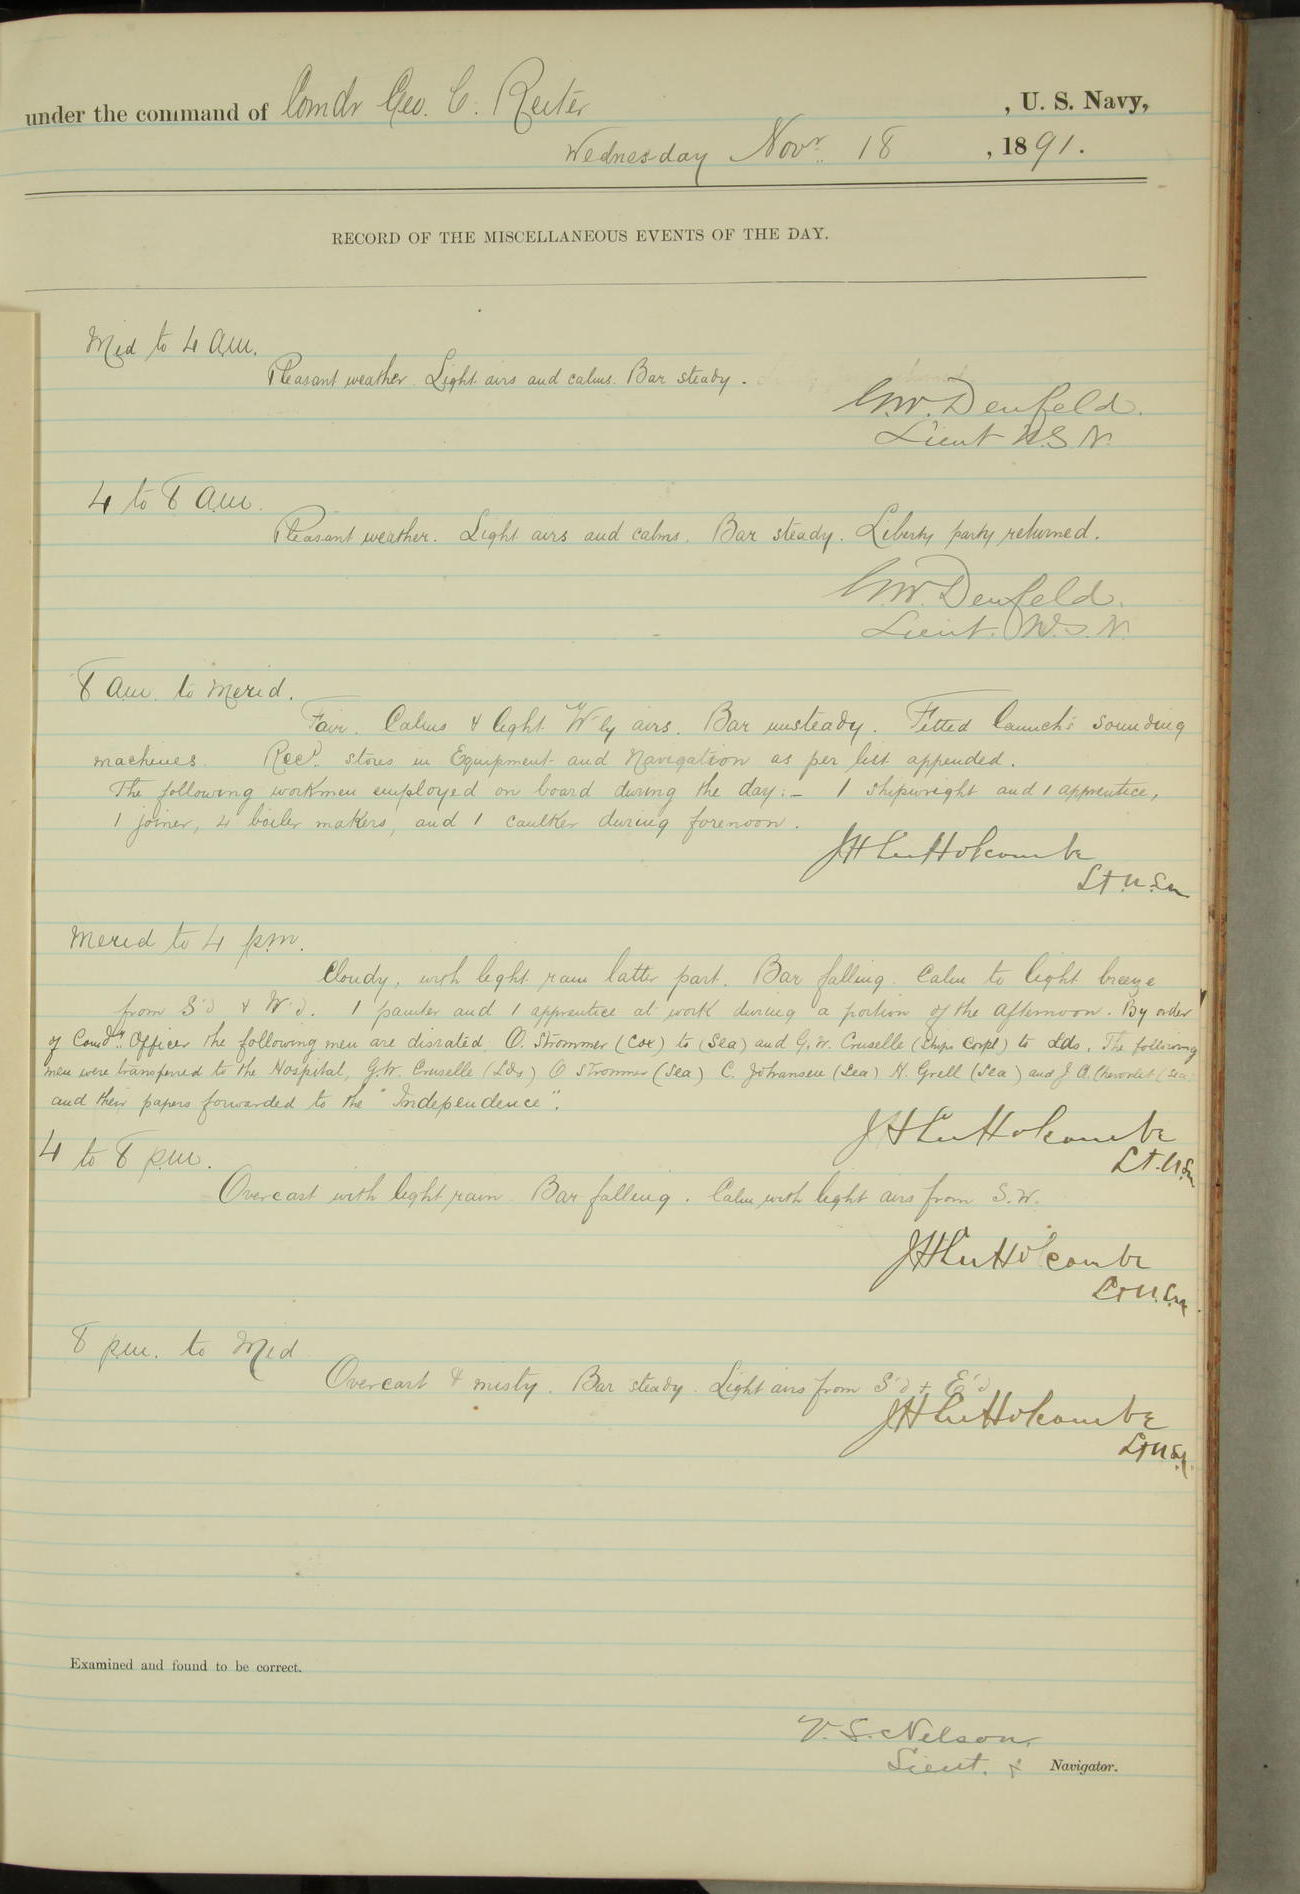 under the command of Comdr Geo. C. Reiter , U. S. Navy,
Wednesday Novr. 18 , 1891.
RECORD OF THE MISCELLANEOUS EVENTS OF THE DAY.
Mid to 4 a.m.
Pleasant weather. Light airs and calms. Bar steady.
G.W. Denfeld.
Lieut U.S.N.
4 to 8 a.m.
Pleasant weather. Light airs and calms. Bar steady. Liberty party returned.
G.W. Denfeld.
Lieut. U.S.N.
8 a.m. to Merid.
Fair. Calms & light W'ly airs. Bar unsteady. Fitted launch's sounding
machines. Recd. stores in Equipment and Navigation as per list appended.
The following workmen employed on board during the day:- 1 shipwright and 1 apprentice,
1 joiner, 4 boiler makers, and 1 caulker during forenoon.
J H Lee Holcombe
Lt. U.S.N
Merid to 4 p.m.
Cloudy, with light rain latter part. Bar falling. Calm to light breeze
from S'd & W'd. 1 painter and 1 apprentice at work during a portion of the afternoon. By order
of Comd'g Officer the following men are disrated. O. Strommer (Cox) to (Sea) and G.W. Cruselle (Ships Corpl) to Lds. The following
men were transferred to the Hospital, G.W. Cruselle (Lds) O Strommer (Sea) C. Johansen (Sea) N. Grell (Sea) and J A. Chevorlet (Sea
and their papers forwarded to the "Independence".
J H Lee Holcombe
Lt. U.S.N
4 to 8 p.m.
Overcast with light rain. Bar falling. Calm with light airs from S.W.
J H Lee Holcombe
Lt U.S.N.
8 p.m. to Mid
Overcast & misty. Bar steady. Light airs from S'd + E'd
J H Lee Holcombe
Lt U.S.N.
Examined and found to be correct.
V. S. Nelson,
Lieut. & Navigator.